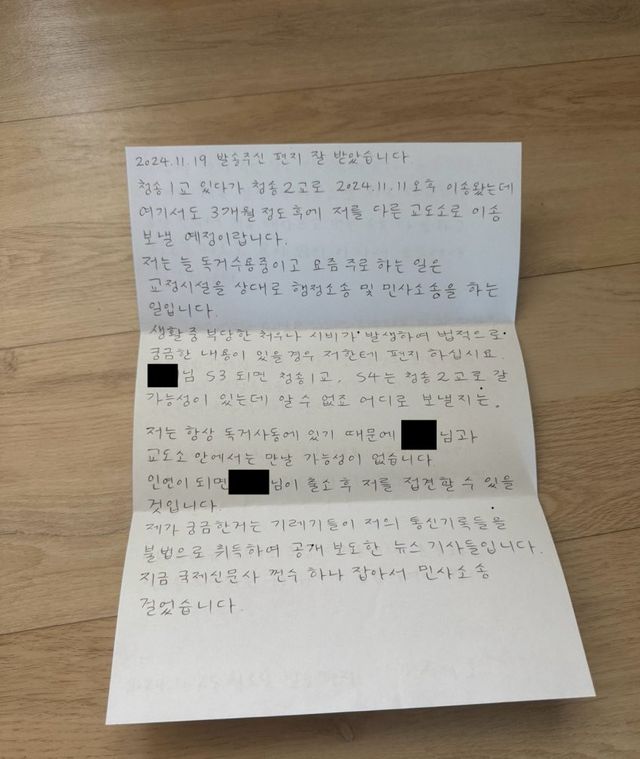 2024.11.19 발송주신 편지 잘 받았습니다.
청송1교 있다가 청송2교로 2024.11.11 오후 이송왔는데
여기서도 3개월 정도 후에 저를 다른 교도소로 이송
보낼 예정이랍니다.
저는 늘 독거수용중이고 요즘 주로 하는 일은
교정시설을 상대로 행정소송 및 민사소송을 하는
일입니다.
생활 중 부당한 처우나 시비가 발생하여 법적으로
궁금한 내용이 있을 경우 저한테 편지 하십시요.
님 S3 되면 청송1교, S4는 청송2교로 갈
가능성이 있는데 알 수 없죠 어디로 보낼지는.
저는 항상 독거사동에 있기 때문에 님과
교도소 안에서는 만날 가능성이 없습니다.
인연이 되면 님이 출소 후 저를 접견할 수 있을
것입니다.
제가 궁금한거는 기레기들이 저의 통신기록들을
불법으로 취득하여 공개 보도한 뉴스 기사들입니다.
지금 국제신문사 껀수 하나 잡아서 민사소송
걸었습니다.